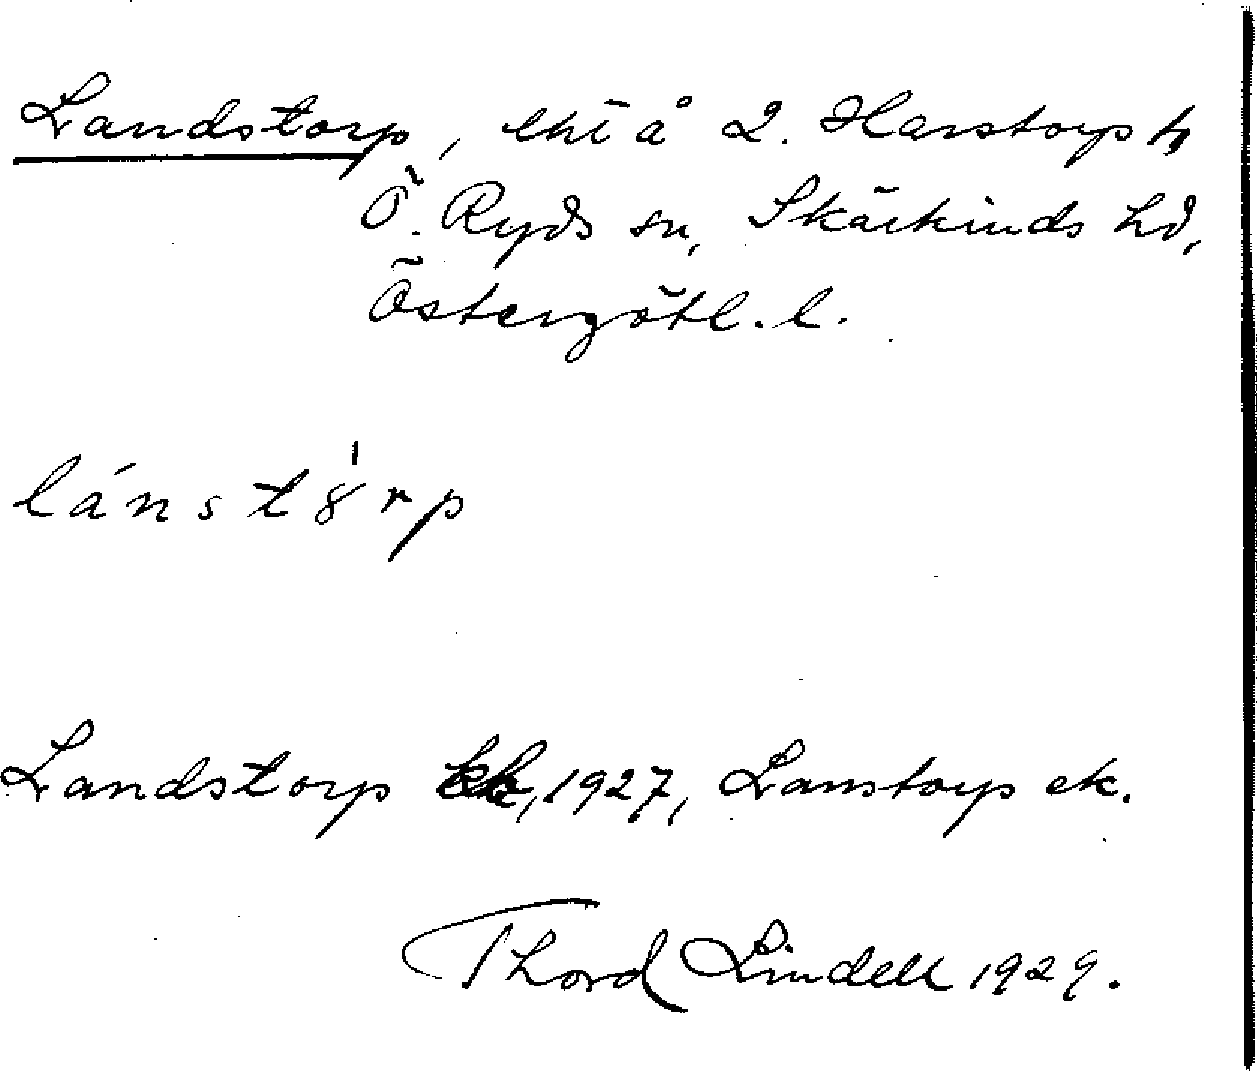 Landstorp, lht å 2. Harstorp h
Ö. Ryds sn, Skärkinds hd,
Östergötl. l.
lánstȣ́rp
Landstorp kb, 1927, Lanstorp ek.
Thord Lindell 1929.